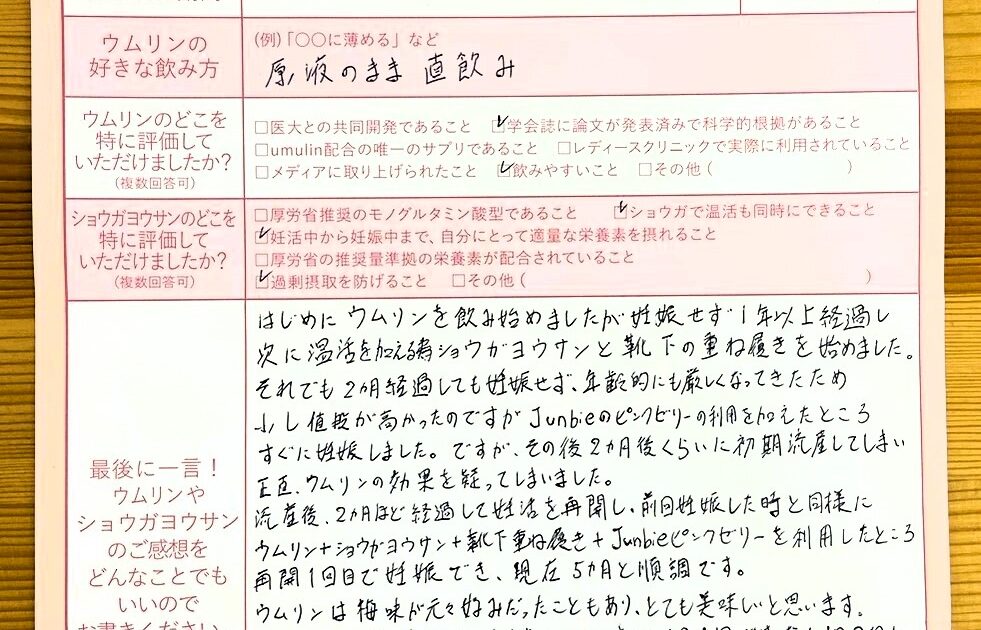 ウムリンの
好きな飲み方
(例)「〇〇に薄める」など
原液のまま 直飲み
ウムリンのどこを
特に評価して
いただけましたか?
(複数回答可)
□医大との共同開発であること ☑学会誌に論文が発表済みで科学的根拠があること
□umulin配合の唯一のサプリであること □レディースクリニックで実際に利用されていること
□メディアに取り上げられたこと ☑飲みやすいこと □その他( )
ショウガヨウサンのどこを
特に評価して
いただけましたか?
(複数回答可)
□厚労省推奨のモノグルタミン酸型であること ☑ショウガで温活も同時にできること
☑妊活中から妊娠中まで、自分にとって適量な栄養素を摂れること
□厚労省の推奨量準拠の栄養素が配合されていること
☑過剰摂取を防げること □その他( )
最後に一言!
ウムリンや
ショウガヨウサン
のご感想を
どんなことでも
いいので
お書きください
はじめに ウムリンを飲み始めましたが妊娠せず1年以上経過し
次に温活を加える為ショウガヨウサンと靴下の重ね履きを始めました。
それでも2カ月経過しても妊娠せず、年齢的にも厳しくなってきたため
少し値段が高かったのですがJunbieのピンクゼリーの利用を加えたところ
すぐに妊娠しました。ですが、その後2カ月後くらいに初期流産してしまい
正直、ウムリンの効果を疑ってしまいました。
流産後、2カ月ほど経過して妊活を再開し、前回妊娠した時と同様に
ウムリン+ショウガヨウサン+靴下重ね履き+Junbieピンクゼリーを利用したところ
再開1回目で妊娠でき、現在5カ月と順調です。
ウムリンは梅味が元々好みだったこともあり、とても美味しいと思います。